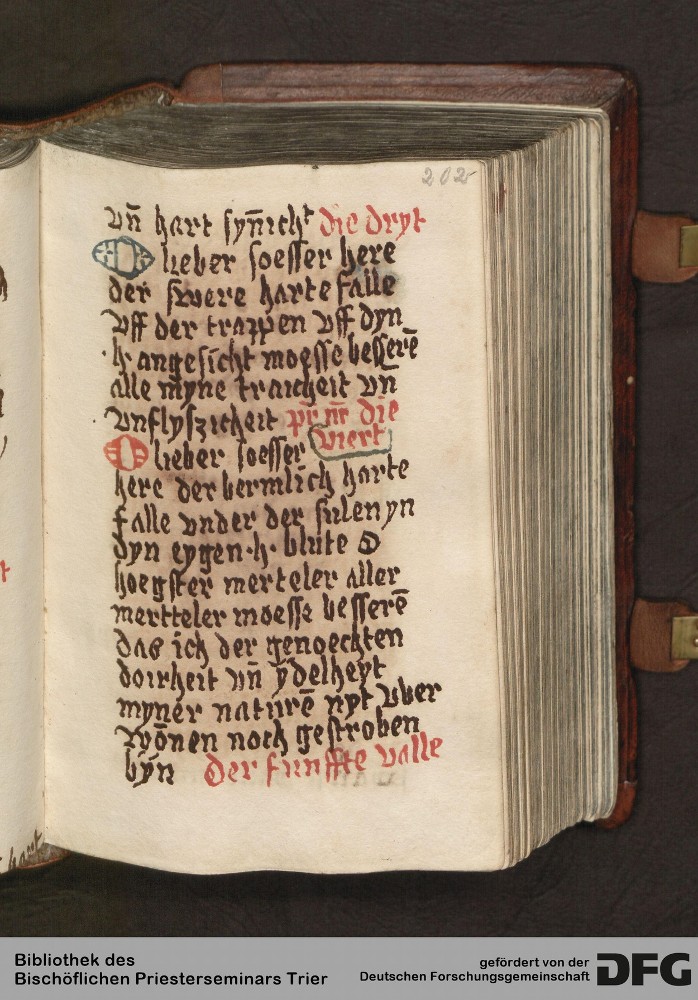 202
vn̄ hart syn̄icht die dryt
O lieber soesser here
der swere harte falle
vff der trappen vff dyn
·h· angesicht moesse besserē
alle myne traicheit vn̄
vnflyszicheit pr̄ nr̄ die
viert
O lieber soesser
here der bermlich harte
falle vnder der sulen yn
dyn eygen ·h· blute O
hoegster merteler aller
mertteler moesse besserē
das ich der genoechten
doirheit vn̄ ydelheyt
myner naturē nyt vber
wōnen noch gestroben
byn der funffte valle
hart
Bibliothek des
Bischöflichen Priesterseminars Trier
gefördert von der
Deutschen Forschungsgemeinschaft
DFG